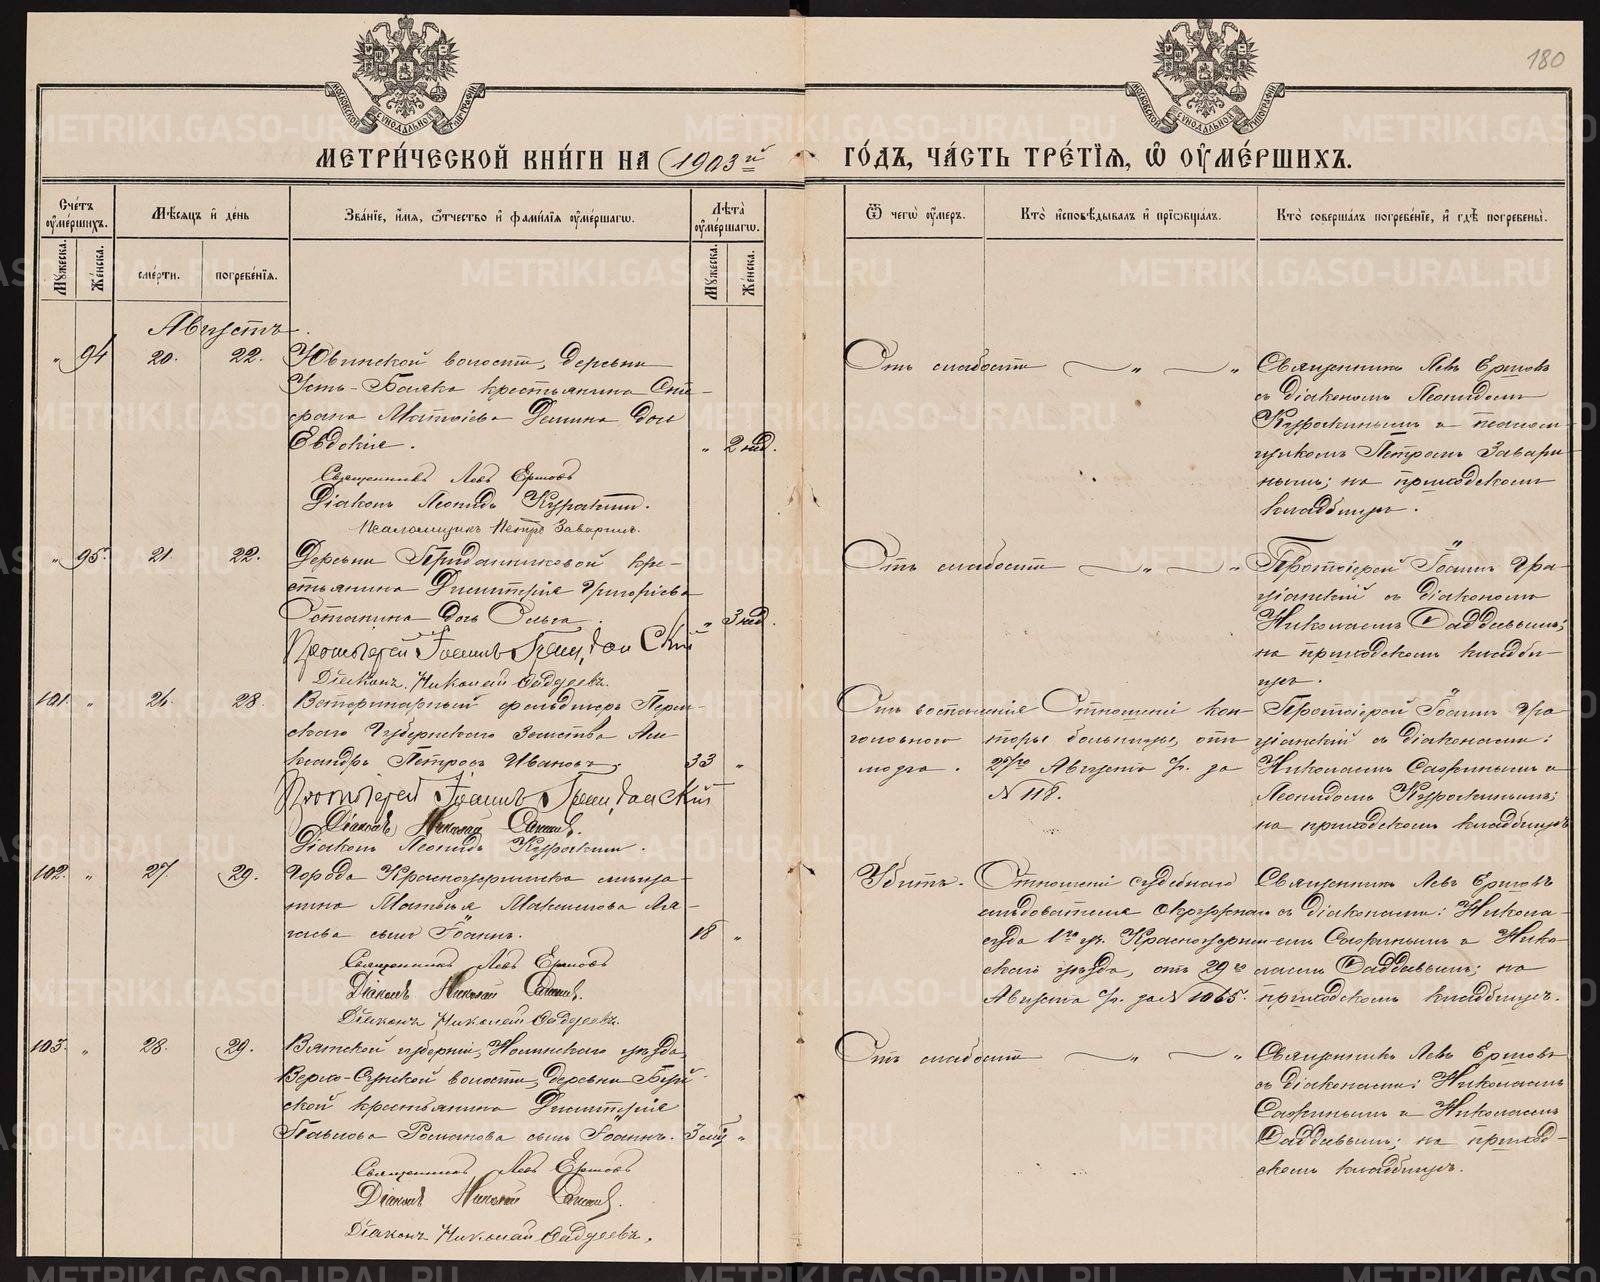 180
МЕТРИ́ЧЕСКОЙ КНИ́ГИ НА 1903й ГО́ДЪ, ЧА́СТЬ ТРЕ́ТІЯ, Ѡ ОУМЕ́РШИХЪ.
Сче́тъ оуме́ршихъ.
Мꙋжеска.
Же́нска.
Мѣ́сяцъ и де́нь
сме́рти.
погребе́нія.
Зва́ніе, и́мя, ѻ́тчество и фами́лія оуме́ршагѡ.
Лѣ́та оуме́ршагѡ.
Мꙋжеска.
Же́нска.
Ѿ чегѡ̀ оу́меръ.
Кто̀ исповѣ́дывалъ и пріѡбща́лъ.
Кто̀ соверша́лъ погребе́ніе, и гдѣ̀ погребены̀.
Августъ.
" 94 20. 22. Ювинской волости, деревни
Усть-Баяка крестьянина Сте-
фана Матѳіева Демина дочь
Евдокія. " 2 нед.
Священникъ Левъ Ершовъ
Діаконъ Леонидъ Куракинъ.
Псаломщикъ Петръ Заваринъ.
Отъ слабости " "
Священникъ Левъ Ершовъ
съ діакономъ Леонидомъ
Куракинымъ и псалом-
щикомъ Петромъ Завари-
нымъ; на приходскомъ
кладбищѣ.
" 95. 21. 22. Деревни Приданниковой кре-
стьянина Димитрія Григоріева
Останина дочь Ольга. " 3 нед.
Протоіерей Іоаннъ
Діаконъ Николай Ѳаддеевъ.
Отъ слабости " "
Протоіерей Іоаннъ Гра-
ціанскій съ діакономъ
Николаемъ Ѳаддѣевымъ;
на приходскомъ кладби-
щѣ.
101. " 26. 28. Ветеринарный фельдшеръ Перм-
скаго Губернскаго Земства Але-
ксандръ Петровъ Ивановъ. 33 "
Протоіерей Іоаннъ
Діаконъ Николай
Діаконъ Леонидъ Куракинъ.
Отъ воспаленія
головного
мозга.
Отношеніе кон-
торы больницы, отъ
Августа с/г. за
№ 118.
Протоіерей Іоаннъ Гра-
ціанскій съ діаконами:
Николаемъ и
Леонидомъ Куракинымъ;
на приходскомъ кладбищѣ
102. " 27. 29. Города Красноуфимска мѣща-
нина Матвѣя Максимова
сынъ Іоаннъ. 18 "
Священникъ Левъ Ершовъ
Діаконъ Николай
Діаконъ Николай Ѳаддеевъ.
Убитъ.
Отношеніе судебнаго
слѣдователя Окружнаго
суда 1го уч. Красноуфим-
скаго уѣзда, отъ 29го
Августа с/г. за № 1065.
Священникъ Левъ Ершовъ
съ діаконами: Никола-
емъ и Нико-
лаемъ Ѳаддѣевымъ; на
приходскомъ кладбищѣ.
103. " 28. 29. Вятской губерніи, Нолинскаго уѣзда,
Верхо-Сунской волости, деревни
ской крестьянина Димитрія
Павлова Романова сынъ Іоаннъ. "
Священникъ Левъ Ершовъ
Діаконъ Николай
Діаконъ Николай Ѳаддеевъ.
Отъ слабости " "
Священникъ Левъ Ершовъ
съ діаконами: Николаемъ
и Николаемъ
Ѳаддѣевымъ; на приход-
скомъ кладбищѣ.
METRIKI.GASO-URAL.RU